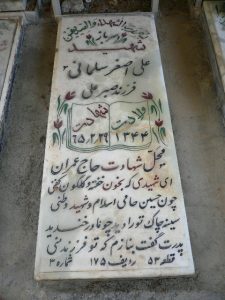 شهید
علی اصغر سلمانی
فرزند صبر علی
ولادت شهادت
۱۳۴۴ ۶۵٫۲٫۲۹
محل شهادت حاج عمران
ای شهیدی که بخون خفته و گلگون کفنی
چون حسین حامی اسلام و شهید وطنی
سینه چاک تو را دید چو مادر خندید
پدرت گفت بنازم که تو فرزند منی
قطعه ۵۳ ردیف ۱۷۵ شماره ۳